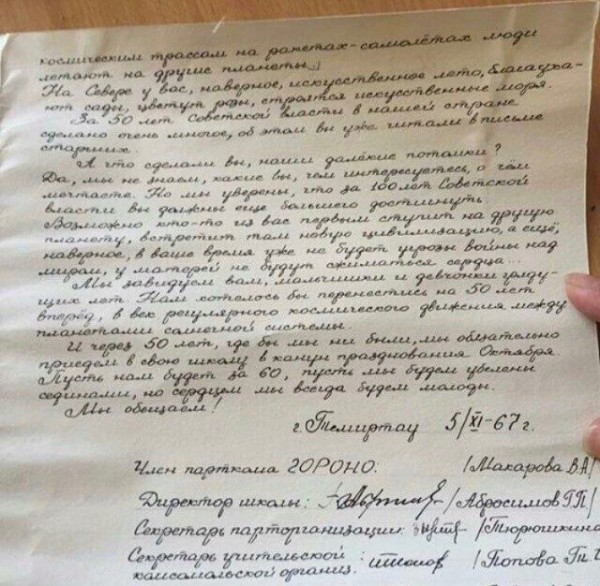 космическим трассам на ракетах-самолётах люди
летают на другие планеты.
На Севере у вас, наверное, искусственное лето, благоуха-
ют сады, цветут розы, строятся искусственные моря.
За 50 лет Советской власти в нашей стране
сделано очень многое, об этом вы уже читали в письме
старших.
А что сделали вы, наши далёкие потомки?
Да, мы не знаем, какие вы, чем интересуетесь, о чём
мечтаете. Но мы уверены, что за 100 лет Советской
власти вы должны еще большего достигнуть
Возможно кто-то из вас первым ступит на другую
планету, встретит там новую цивилизацию, а ещё,
наверное, в ваше время уже не будет угрозы войны над
миром, у матерей не будут сжиматься сердца...
Мы завидуем вам, мальчишки и девчонки гряду-
щих лет. Нам хотелось бы перенестись на 50 лет
вперёд, в век регулярного космического движения между
планетами солнечной системы.
И через 50 лет, где бы мы ни были, мы обязательно
приедем в свою школу в канун празднования Октября
Пусть нам будет за 60, пусть мы будем убелены
сединами, но сердцем мы всегда будем молоды.
Мы обещаем!
г. Темиртау 5/XI-67 г.
Член парткома ГОРОНО: /Макарова В.А/
Директор школы: /Абросимов Г.П/
Секретарь парторганизации: /Тюрюшкина
Секретарь учительской /Попова Г.П.
комсомольской организ.: